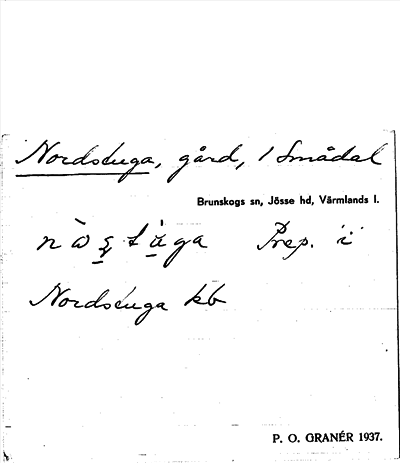 Nordstuga, gård, i Smådal
Brunskogs sn, Jösse hd, Värmlands l.
Prep. i
Nordstuga kb
P. O. GRANÉR 1937.